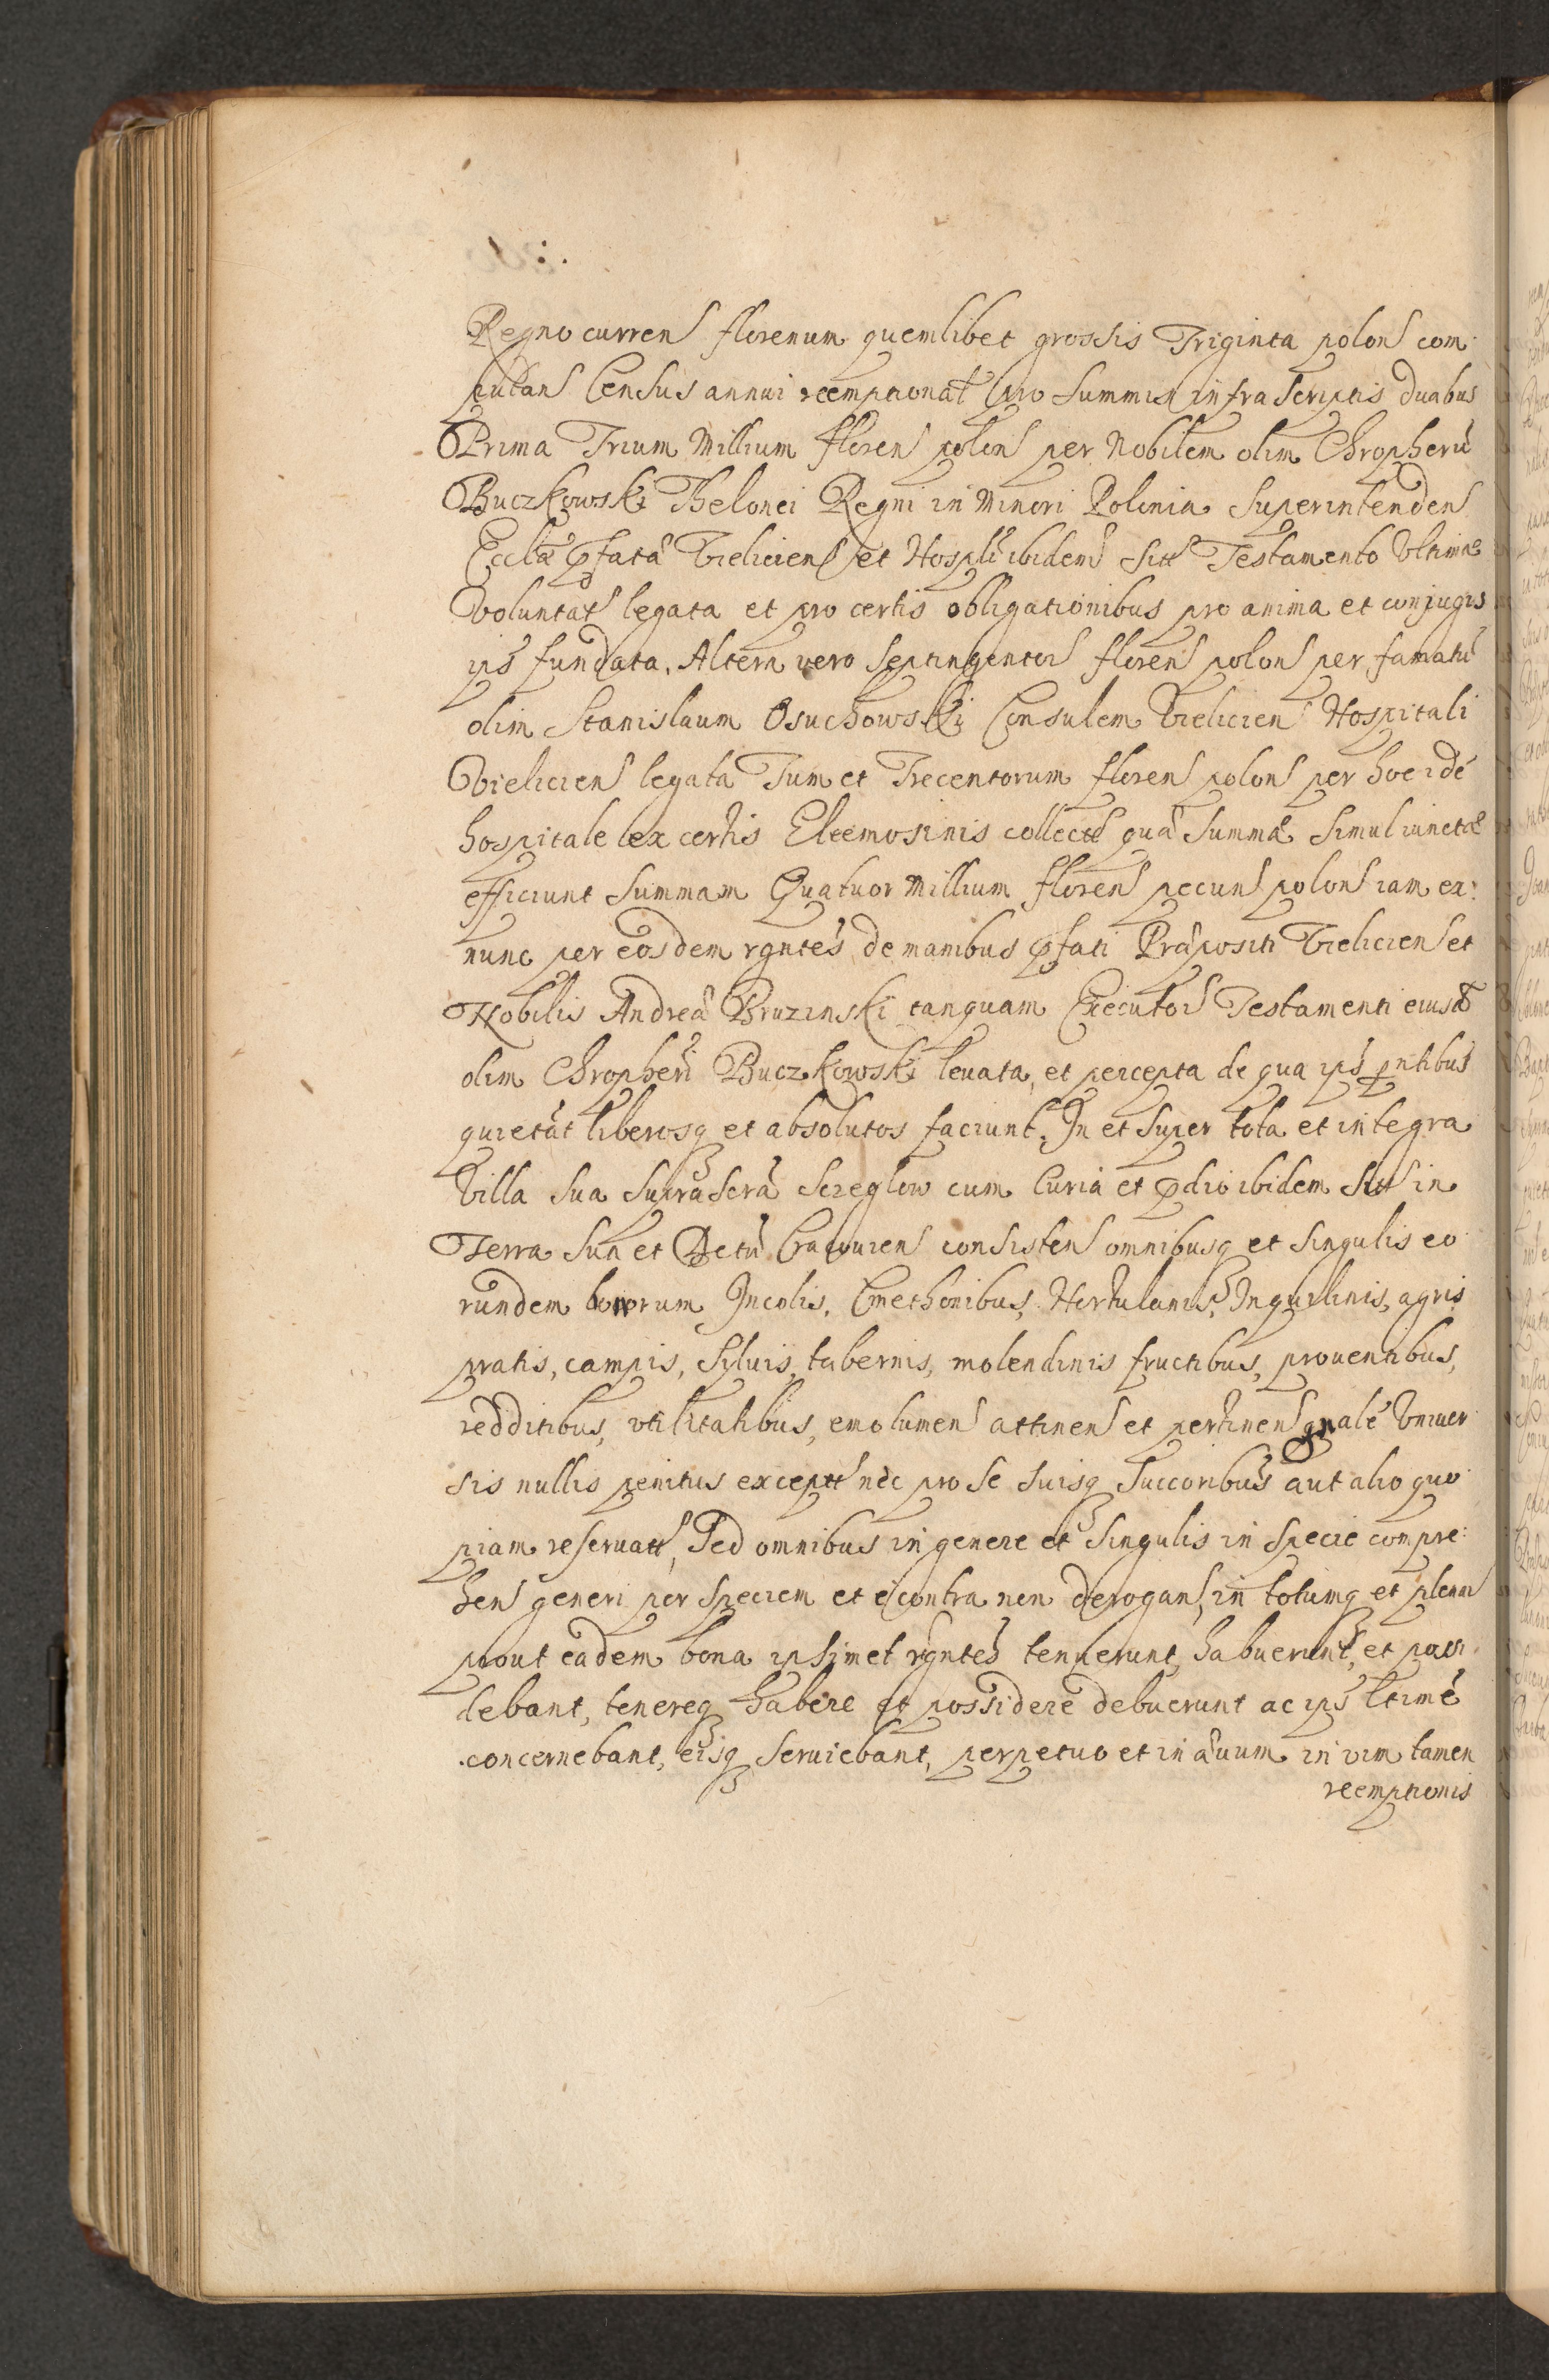 Regno curren florenum quemlibet grossis Triginta polon com
putan Census annui reemptionat pro Summis infra Scriptis duabus
Prima Trium Millium floren polon per Nobilem olim Chropherū
Buczkowski Thelonei Regni in Minori Polonia Superintenden
Eccłæ pfatæ Vielicien et Hospłi ibidem sitt Testamento Vltimæ
Voluntat legata et pro certis obligationibus pro anima et conjugis
ips fundata. Altera vero Septingentor floren polon per famatū
olim Stanislaum Osuchowski Consulem Vielicien Hospitali
Vielicien legata Tum et Trecentorum floren polon per hoc idē
hospitale ex certis Eleemosinis collectt quæ Summæ Simul iunctæ
efficiunt Summam Quatuor Millium floren pecun polon iam ex:
nunc per eosdem rgntes de manibus pfati Præpositi Vielicien et
Nobilis Andreæ Bruzinski tanquam Executor Testamenti eiusd
olim Chropheri Buczkowski levata, et percepta de qua ips pntibus
quietāt liberosq et absolutos faciunt. In et Super tota et integra
Villa Sua Suprascra Szreglow cum Curia et pdio ibidem sitt in
Terra Sua et Dctu Cracovien consisten omnibusq et Singulis eo
rundem bonorum Incolis, Cmethonibus, Hortulanis, Inquilinis, agris
pratis, campis, Syluis, tabernis, molendinis fructibus, prouentibus,
redditibus, vtilitatibus, emolumen attinen et pertinen gnalē Vniuer
sis nullis penitus exceptt nec pro Se Suisq Succoribus aut alio quo
piam reseruatt, Sed omnibus in genere et Singulis in Specie compre:
hen generi per Speciem et e contra non derogan, in totumq et plenu
prout eadem bona ipsimet rgntes tenuerunt, habuerunt, et possi
debant, tenereq habere et possidere debuerunt ac ips ltimē
concernebant, eisq Seruiebant, perpetuo et in ævum in vim tamen
reemptionis